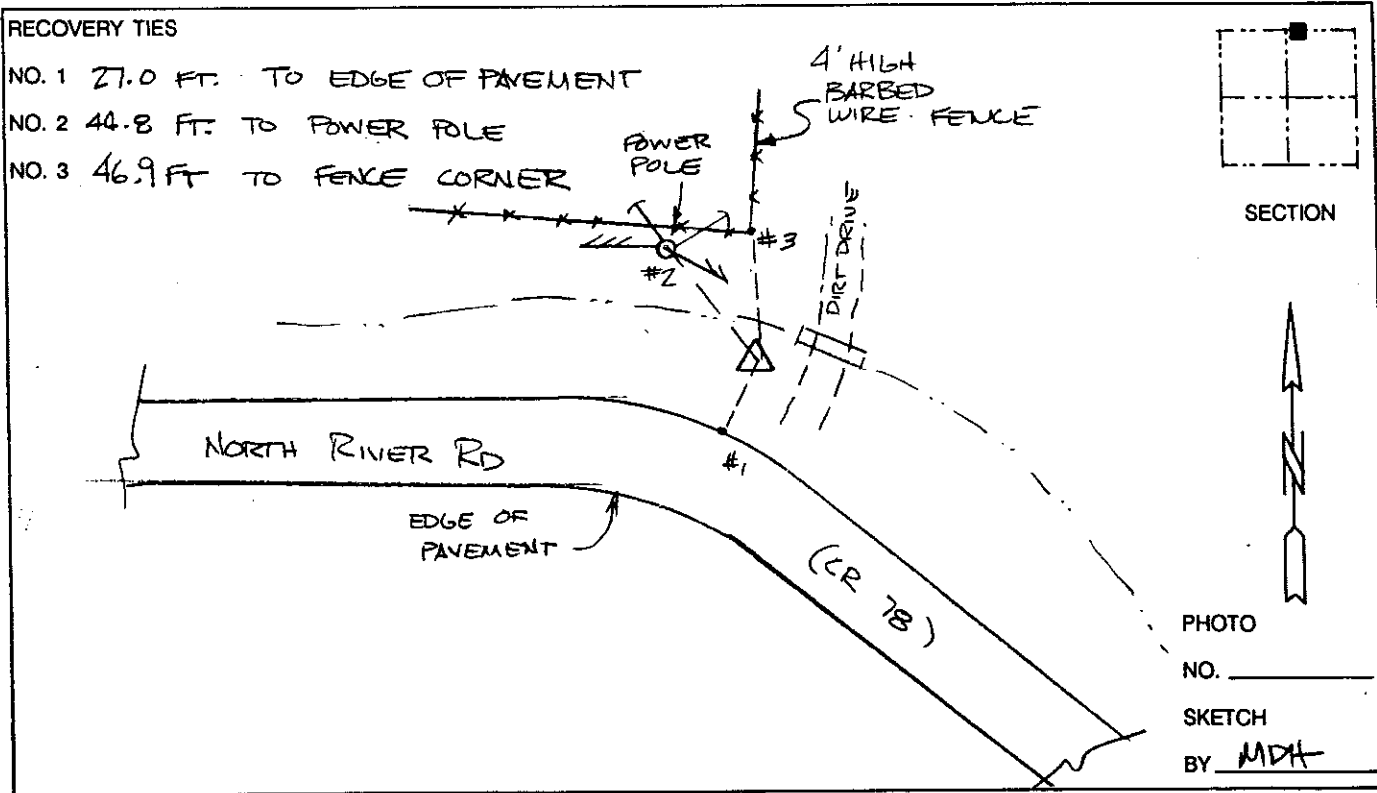 RECOVERY TIES
NO. 1 27.0 FT. TO EDGE OF PAVEMENT
NO. 2 44.8 FT. TO POWER POLE
NO. 3 46.9 FT TO FENCE CORNER
4' HIGH
BARBED
WIRE FENCE
POWER
POLE
SECTION
#3
#2
DIRT DRIVE
NORTH RIVER RD
#1
EDGE OF
PAVEMENT
(CR 78)
N
PHOTO
NO.
SKETCH
BY MDH